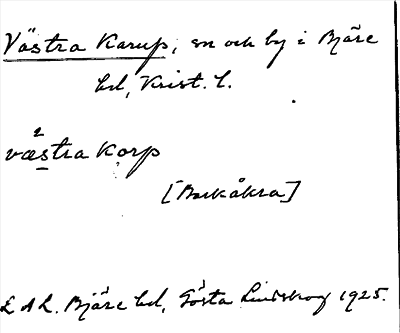 Västra Karup, sn och by i Bjäre
hd, Krist. l.
2
västra korp
[Barkåkra]
L A L. Bjäre hd, Gösta Lindskog 1925.